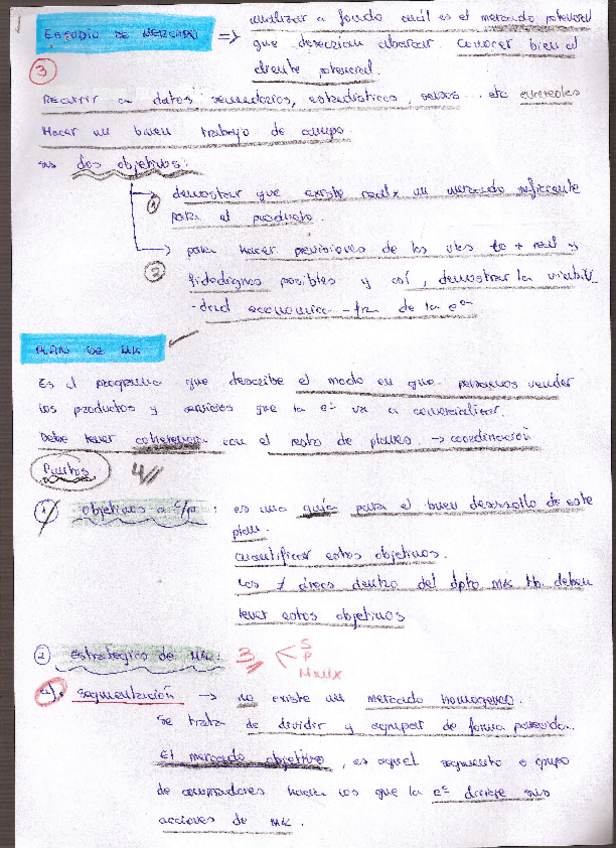 ESTUDIO DE MERCADO => analizar a fondo cuál es el mercado potencial
que desearian abarcar. Conocer bien al
cliente potencial.
3
Recurrir a datos secundarios, estadísticos, sensos... etc
Hacer un buen trabajo de campo.
sus dos objetivos:
① demostrar que existe realx un mercado suficiente
para el producto.
② para hacer previsiones de las vtas lo + real y
fidedignas posibles y así, demostrar la viabili-
-dad economica - fra de la eª
PLAN DE MK
Es el programa que describe el modo en que pensamos vender
los productos y servicios que la eª va a comercializar.
Debe tener coherencia con el resto de planes. → coordinación
Puntos 4//
① objetivos a c/p : es una guía para el buen desarrollo de este
plan.
cuantificar estos objetivos.
Las ≠ áreas dentro del dpto MK tb. deben
tener estos objetivos
② estrategias de MK: 3 < S
P
M mix
a). Segmentación → no existe un mercado homogeneo.
Se trata de dividir y agrupar de forma parecida.
El mercado objetivo, es aquel segmento o grupo
de compradores hacia los que la eª dirige sus
acciones de MK.